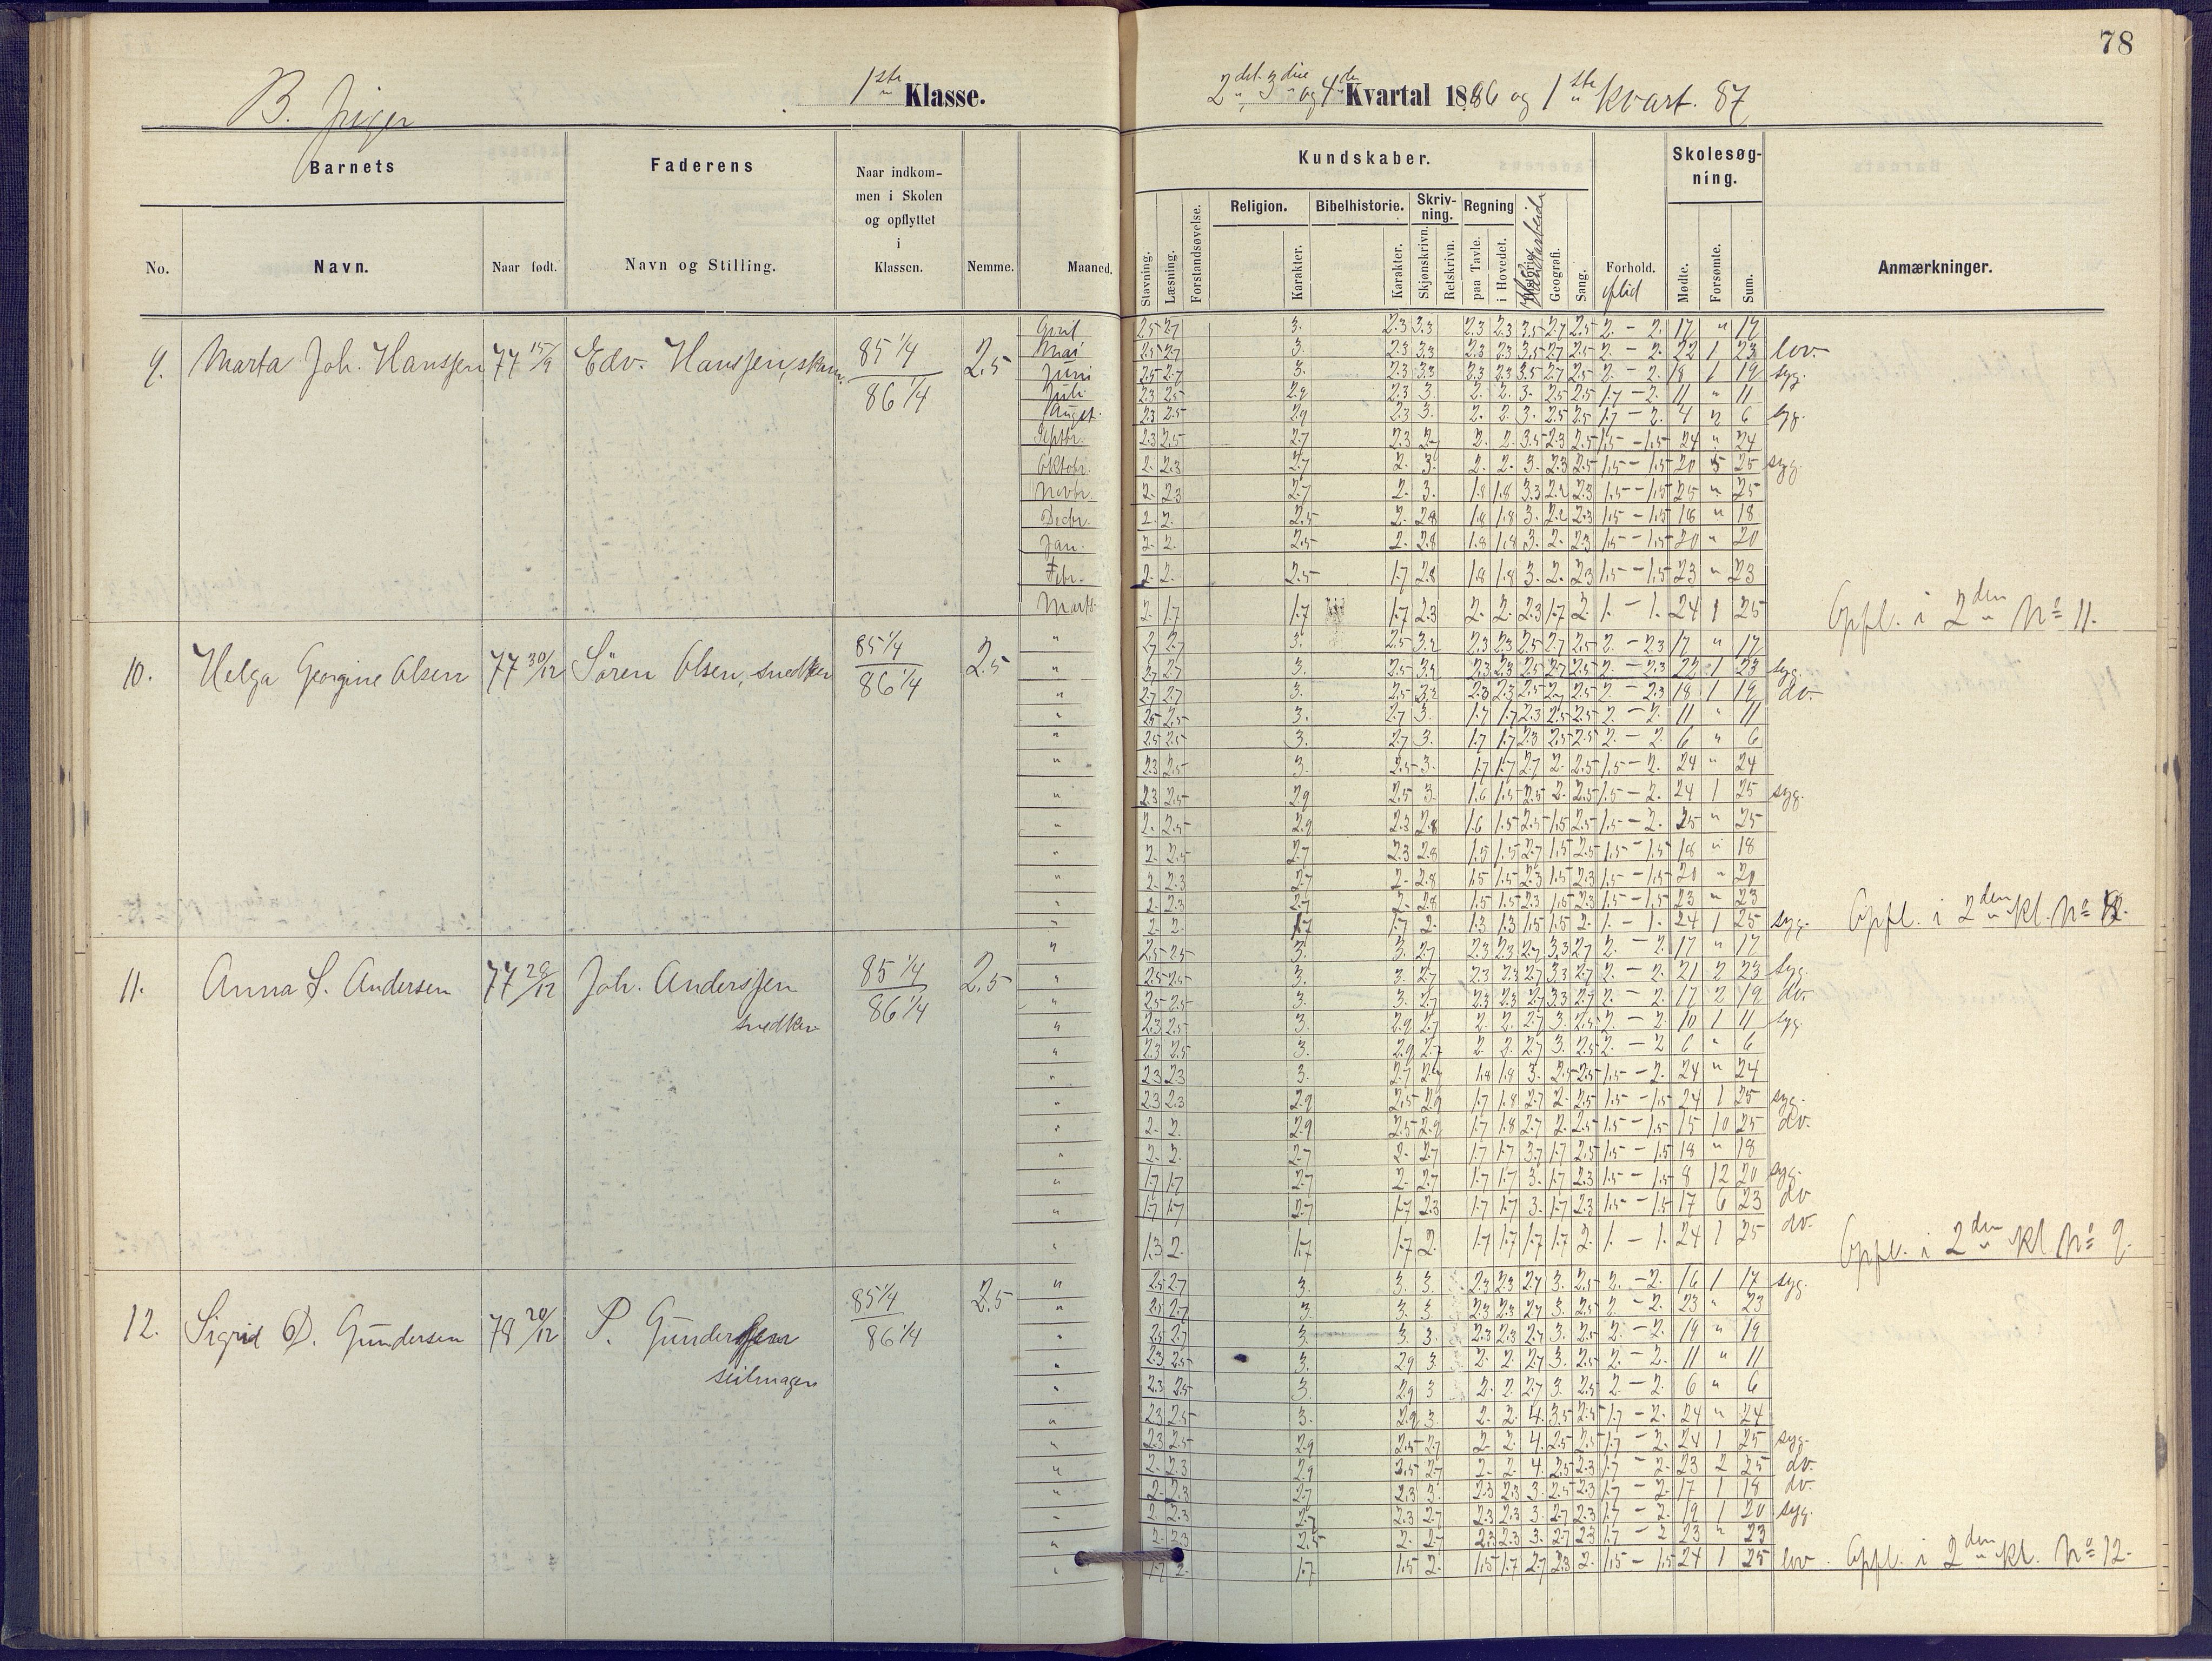 78
B. piger 1ste Klasse. 2det 3die og 4de Kvartal 1886 og 1ste Kvart. 87
Barnets Faderens Naar indkom-
men i Skolen
og opflyttet
i
Klassen. Nemme. Maaned.
No. Navn. Naar født. Navn og Stilling.
Kundskaber. Skolesøg-
ning.
Religion. Bibelhistorie. Skriv-
ning. Regning
Stavning. Læsning. Forstandsøvelse. Karakter. Karakter. Skjønskrivn. Retskrivn. paa Tavle. i Hovedet. Haandarbeide Geografi. Sang. Forhold. flid Mødte. Forsømte. Sum. Anmærkninger.
9. Marta Joh. Hanssen 77 15/9 Edv. Hanssen, 85 1/4 86 1/4 2.5
April 2.5 2.7 3. 2.3 3.3 2.3 2.3 3.5 2.7 2.5 2. - 2. 17 " 17
Mai 2.5 2.7 3. 2.3 3.3 2.3 2.3 3.5 2.7 2.5 2. - 2. 22 1 23 lov.
Juni 2.5 2.7 3. 2.3 3.3 2.3 2.3 3.5 2.7 2.5 2. - 2. 18 1 19 syg.
Juli 2.3 2.5 2.9 2.3 3. 2. 2. 3. 2.5 2.5 1.7 - 2. 11 " 11
August 2.3 2.5 2.9 2.3 3. 2. 2. 3. 2.5 2.5 1.7 - 2. 4 2 6 syg.
Septbr. 2.3 2.5 2.7 2.3 2. 2. 3.5 2.3 2.5 1.5 - 1.5 24 " 24
Oktobr. 2. 2.3 2.7 2. 3. 2. 2. 3. 2.3 2.5 1.5 - 1.5 20 5 25 syg.
Novbr. 2. 2.3 2.7 2. 3. 1.8 1.8 3.3 2.2 2.3 1.5 - 1.5 25 " 25
Decbr. 2. 2. 2.5 2. 2.8 1.8 1.8 3. 2.2 2.3 1.5 - 1.5 18 " 18
Jan. 2. 2. 2.5 2. 2.8 1.8 1.8 3. 2. 2.3 1.5 - 1.5 20 " 20
Febr. 2. 2. 2.5 1.7 2.8 1.8 1.8 3. 2. 2.3 1.5 - 1.5 23 " 23
Marts 2. 1.7 1.7 1.7 2.3 2. 2. 2.3 1.7 2. 1. - 1. 24 1 25 Opfl. i 2den No 11.
10. Helga Georgine Olsen 77 30/12 Sören Olsen, snedker 85 1/4 86 1/4 2.5
" 2.7 2.7 3. 2.5 3.2 2.3 2.3 2.5 2.7 2.5 2. - 2.3 17 " 17
" 2.7 2.7 3. 2.5 3.2 2.3 2.3 2.5 2.7 2.5 2. - 2.3 22 1 23 syg.
" 2.7 2.7 3. 2.5 3.2 2.3 2.3 2.5 2.7 2.5 2. - 2.3 18 1 19 do.
" 2.5 2.5 3. 2.7 3. 1.7 1.7 2.3 2.5 2.5 2. - 2. 11 " 11
" 2.5 2.5 3. 2.7 3. 1.7 1.7 2.3 2.5 2.5 2. - 2. 6 " 6
" 2.3 2.5 3. 2.5 3. 1.7 1.7 2.7 2. 2.5 1.5 - 2. 24 " 24
" 2.3 2.5 2.9 2.5 3. 1.6 1.5 2.5 2. 2.5 1.5 - 2. 24 1 25 syg.
" 2. 2.5 2.9 2.3 2.8 1.6 1.5 2.5 1.5 2.5 1.5 - 2. 25 " 25
" 2. 2.5 2.7 2.3 2.8 1.5 1.5 2.7 1.5 2.5 1.5 - 1.5 18 " 18
" 2. 2.3 2.7 2. 2.8 1.5 1.5 2.3 1.5 2.3 1.5 - 1.5 20 " 20
" 2. 2.3 2.7 2. 2.8 1.5 1.5 2.3 1.5 2.3 1.5 - 1.5 23 " 23
" 2. 2. 1.7 1.7 2. 1.3 1.3 1.5 1.5 2. 1. - 1. 24 1 25 syg. Opfl. i 2den Kl. No
11. Anna S. Andersen 77 28/12 Joh. Anderssen snedker 85 1/4 86 1/4 2.5
" 2.5 2.5 3. 3. 2.7 2.3 2.3 2.7 3.3 2.7 2. - 2. 17 " 17
" 2.5 2.5 3. 3. 2.7 2.3 2.3 2.7 3.3 2.7 2. - 2. 21 2 23 syg.
" 2.5 2.5 3. 3. 2.7 2.3 2.3 2.7 3.3 2.7 2. - 2. 17 2 19 do.
" 2.3 2.5 3. 2.9 2.7 2. 2. 2.7 3. 2.5 2. - 2. 10 1 11 syg.
" 2.3 2.5 3. 2.9 2.7 2. 2. 2.7 3. 2.5 2. - 2 6 " 6
" 2.3 2.3 3. 2.7 1.8 1.8 3. 2.5 2.5 1.5 - 2. 24 " 24
" 2.3 2.3 2.9 2.5 2.9 1.7 1.8 2.7 2. 2.5 1.5 - 1.5 24 1 25 syg.
" 2. 2. 2.9 2.5 2.9 1.7 1.8 2.7 2. 2.5 1.5 - 1.5 15 10 25 do.
" 2. 2. 2.7 2. 2.7 1.7 1.7 3.7 1.7 2.5 1.5 - 1.5 18 " 18
" 1.7 1.7 2.7 2. 2.7 1.7 1.7 3. 1.7 2.3 1.5 - 1.5 8 12 20 syg.
" 1.7 1.7 2.7 1.7 2.3 1.7 1.7 3. 1.7 2.3 1.5 - 1.5 17 6 23 do
" 1.3 2. 1.7 1.7 2. 1.7 1.7 1.7 1.7 2. 1. - 1. 24 1 25 do. Opfl. i 2den Kl No 9.
12. Sigrid D. Gundersen 78 20/12 P. Gunderssen seilmager 85 1/4 86 1/4 2.5
" 2.5 2.7 3. 3. 3. 2.3 2.3 2.7 3. 2.5 2. - 2. 16 1 17 syg.
" 2.5 2.7 3. 3. 3. 2.3 2.3 2.7 3. 2.5 2 - 2. 23 " 23
" 2.5 2.7 3. 3. 3. 2.3 2.3 2.7 3. 2.5 2. - 2. 19 " 19
" 2.3 2.5 3. 2.9 3. 2. 2. 2.7 3. 2.5 2. - 2. 11 " 11
" 2.3 2.5 3. 2.9 3 2. 2. 2.7 3. 2.5 2. - 2. 6 " 6
" 2.3 2.5 3. 2.9 3. 2. 2. 4. 3.5 2.5 1.7 - 2. 24 " 24
" 2.3 2.5 2.9 2.5 2.7 2. 2. 4. 2.5 2.5 1.7 - 2. 24 1 25 syg.
" 2. 2.3 2.9 2.5 2.7 2. 2. 4 2.5 2.3 1.7 - 2. 23 2 25 do.
" 2. 2.3 2.7 2.3 3. 2.3 2.3 3. 2.5 2.3 1.7 - 2. 17 1 18 do.
" 2. 2.3 2.7 2.3 2.7 2.3 2.3 3. 2.7 2.3 1.7 - 2. 19 1 20 syg.
" 2. 2.3 2.5 2. 2.7 2.3 2.3 3. 2.7 2.3 1.7 - 2 23 " 23
" 1.7 2. 1.7 1.5 2. 1.5 1.7 2.7 2.3 2. 1.5 - 1.5 24 1 25 lov. Opfl. i 2den Kl. No 12.